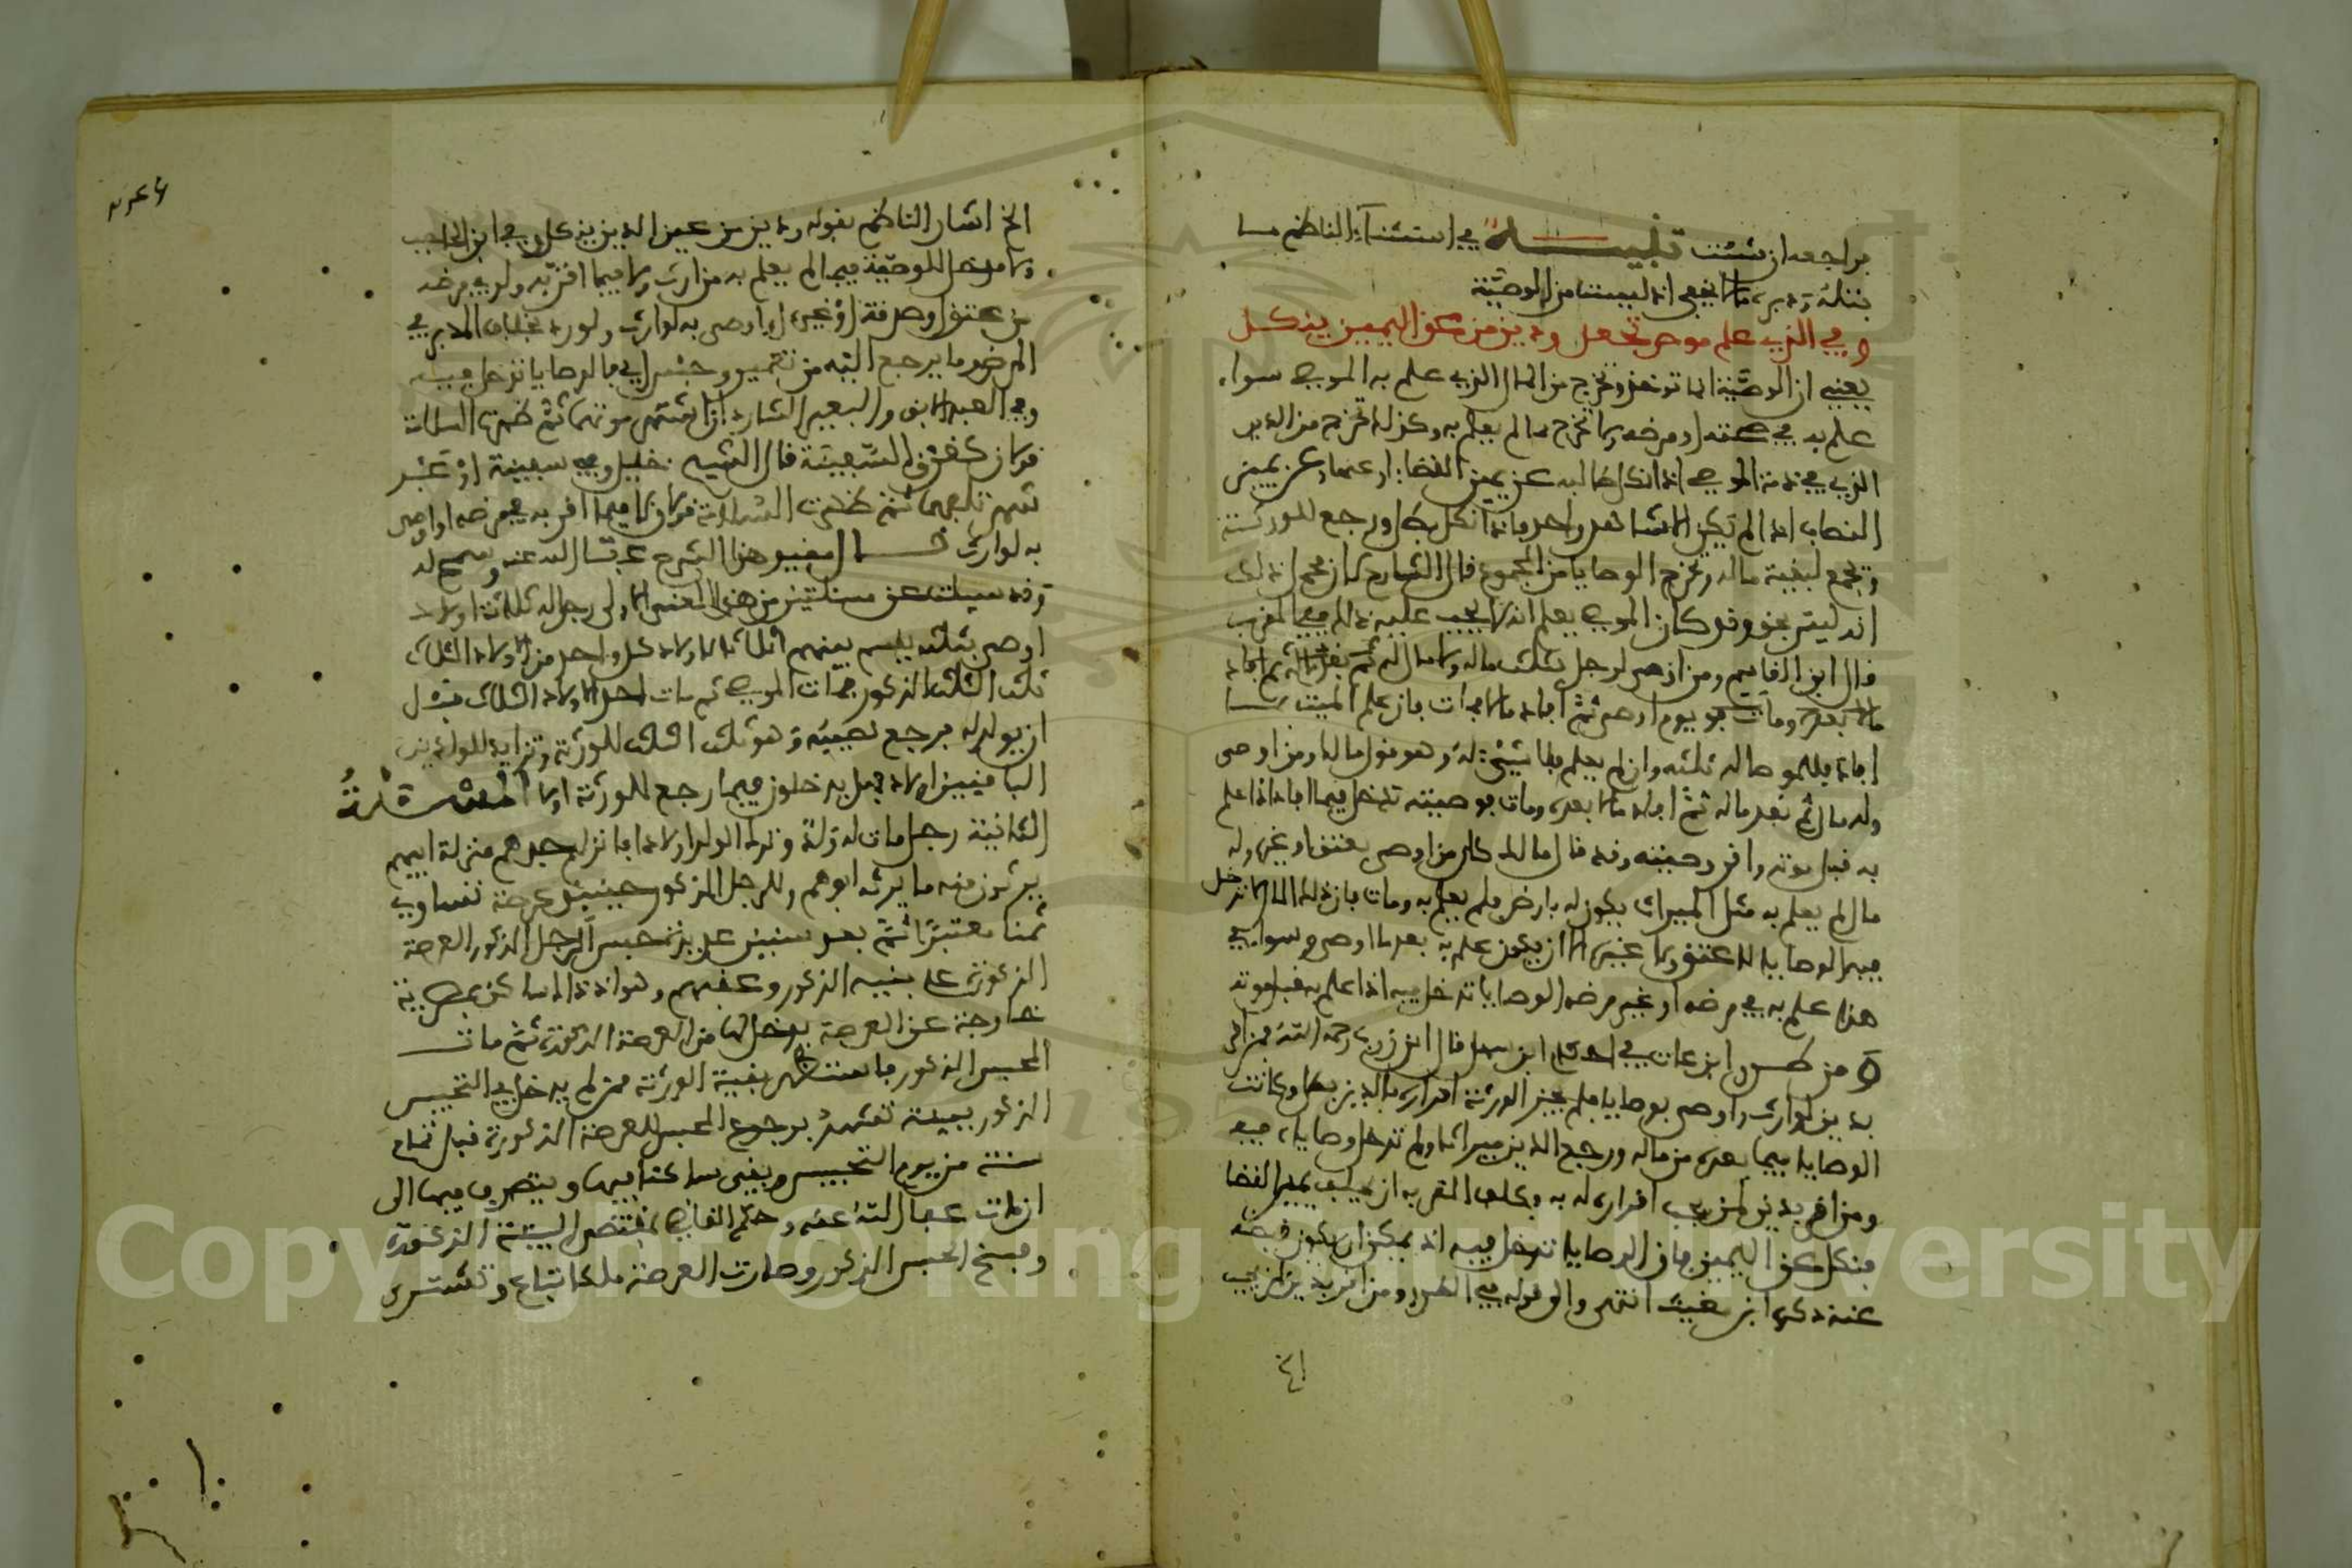 براجعه ان شئت تنبيه في استثناء الناظم مسا
بتله ودبره ما لا يخفى اذ ليستا من الوصية
وفي الذي علم موص تجعل ودين من عن اليمين ينكل
يعني ان الوصية انما توخذ وتخرج من المال الذي علم به الموصي سواء
علم به في صحته او مرضه ولا تخرج مما لم يعلم به وكذلك تخرج من الدين
الذي في ذمة الموصي اذا نكل طالبه عن يمين القضاء او عن يمين
النصاب اذا لم يكن الا شاهد واحد فاذا نكل بطل ورجع للورثة
وتجمع لبقية ماله وتخرج الوصايا من المجموع قال الشارح كان
انه ليس بحق وقد كان الموصي يعلم انه لا يجب عليه ذلك في المقرب
قال ابن القاسم ومن اوصى لرجل بثلث ماله ولا مال له ثم افاد
مالا بعد ومات فهو يوم اوصى ثم افاد مالا ومات فان علم الميت بما
افاد فللموصى له ثلثه وان لم يعلم فلا شيء له وهو قول مالك ومن اوصى
وله مال ثم نفد ماله ثم افاد مالا بعده ومات فوصيته تدخل فيما افاد اذا علم
به قبل موته واقر وصيته وقد قال مالك كل من اوصى بعتق او غيره وله
مال لم يعلم به مثل الميراث يكون له بارض فلم يعلم به ومات فان ذلك المال لا تدخل
فيه الوصايا لا عتق ولا غيره الا ان يكون علم به بعد ما اوصى وسواء في
هذا علم به في مرضه او غير مرضه الوصايا تدخل فيه اذا علم به قبل موته
من طرر ابن عات في احكام ابن سهل قال ابن زرب رحمه الله فمن اقر
بدين لوارث واوصى بوصايا فلم يجز الورثة اقراره بالدين بطل وكانت
الوصايا فيما بعده من ماله ورجع الدين ميراثا ولم تدخل وصاياه فيه
ومن اقر بدين لمن يجب اقراره له به وكلف المقر به ان يحلف يمين القضا
فنكل عن اليمين فان الوصايا تدخل فيه اذ يمكن ان يكون قبضه
عنه ذكره ابن مغيث انتهى والى قوله في الطرر ومن اقر بدين لمن يجب
الخ اشار الناظم بقوله ودين من عن اليمين ينكل وفي ابن الحاجب
ولا مدخل للوصية فيما لم يعلم به من ارث ولا فيما اقر به ولو في مرضه
من عتق او صدقة او غيره او اوصى به لوارث ولو رد بخلاف المدبر في
المرض وما يرجع اليه من تعمير وحبس اي فالوصايا تدخل فيه
وفي العبد الابق والبعير الشارد اذا اشتهر موتهما ثم ظهرت السلامة
قولان كغرق السفينة قال الشيخ خليل وفي سفينة او عبد
شهر تلفهما ثم ظهرت السلامة قولان لا فيما اقر به في مرضه او اوصى
به لوارث قال مقيد هذا الشرح عفا الله عنه وسمح له
وقد سيلت عن مسئلتين من هذا المعنى الاولى رجل له ثلاثة اولاد
اوصى بثلثه يقسم بينهم اثلاثا لاولاد كل واحد من الاولاد الثلاث
ثلث الثلث المذكور فمات الموصي ثم مات احد الاولاد الثلاث قبل
ان يولد له فرجع نصيبه وهو ثلث الثلث للورثة وتزايد للولدين
الباقيين اولاد فهل يدخلون فيما رجع للورثة او لا المسئلة
الثانية رجل مات له ولد وترك الولد اولادا فانزلهم جدهم منزلة ابيهم
يرثون منه ما يرثه ابوهم وللرجل المذكور حينئذ عرصة تساوي
ثمنا معتبرا ثم بعد سنين عديدة حبس الرجل المذكور العرصة
المذكورة على بنيه الذكور وعقبهم وهو اذ ذاك ساكن بمصرية
خارجة عن العرصة يدخل لها من العرصة المذكورة ثم مات
المحبس المذكور فاستظهر بقية الورثة ممن لم يدخل في التحبيس
المذكور ببينة تشهد برجوع المحبس للعرصة المذكورة قبل تمام
سنة من يوم التحبيس وبقي ساكنا فيها ويتصرف فيها الى
ان مات عفا الله عنه وحكم القاضي بمقتضى البينة المذكورة
وفسخ الحبس المذكور وصارت العرصة ملكا تباع وتشترى
Copyright © King Saud University
1957